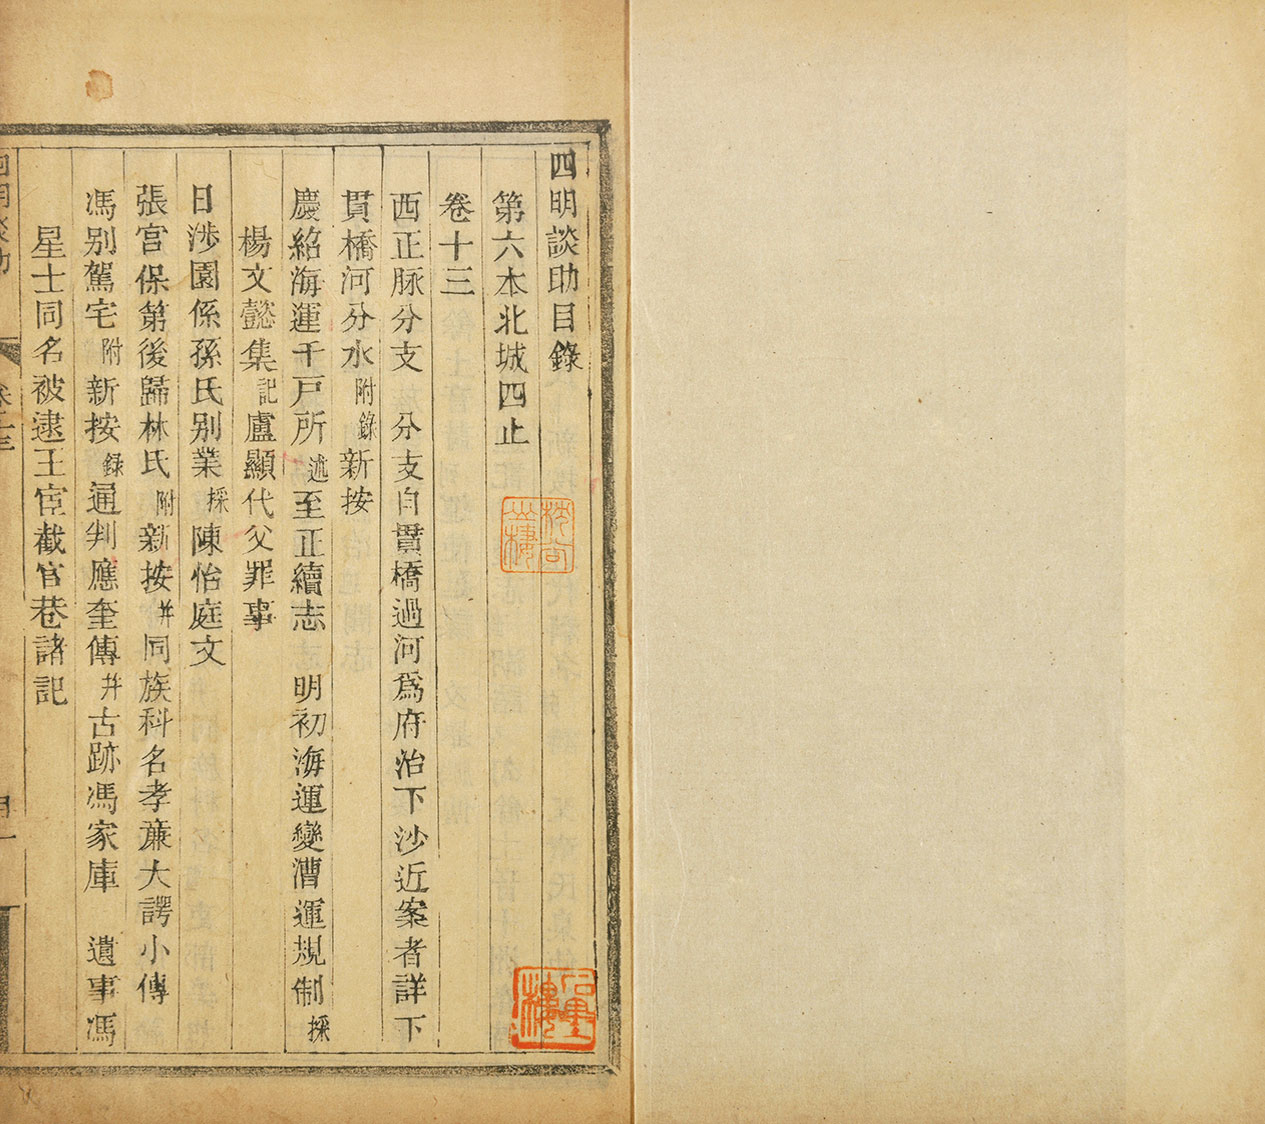 四明談助目錄
第六本北城四止
卷十三
西正脉分支　分支自貫橋過河爲府治下沙近案者詳下
貫橋河分水附錄新按
慶紹海運千戸所述至正續志　明初海運變漕運規制採
楊文懿集記盧顯代父罪事
日涉園係孫氏別業採陳怡庭文
張宮保第後歸林氏附新按并同族科名孝亷大諤小傳
馮別駕宅附新按録通判應奎傳并古跡馮家庫　遺事馮
星士同名被逮王宦截官巷諸記
四明談助
卷十三
目一